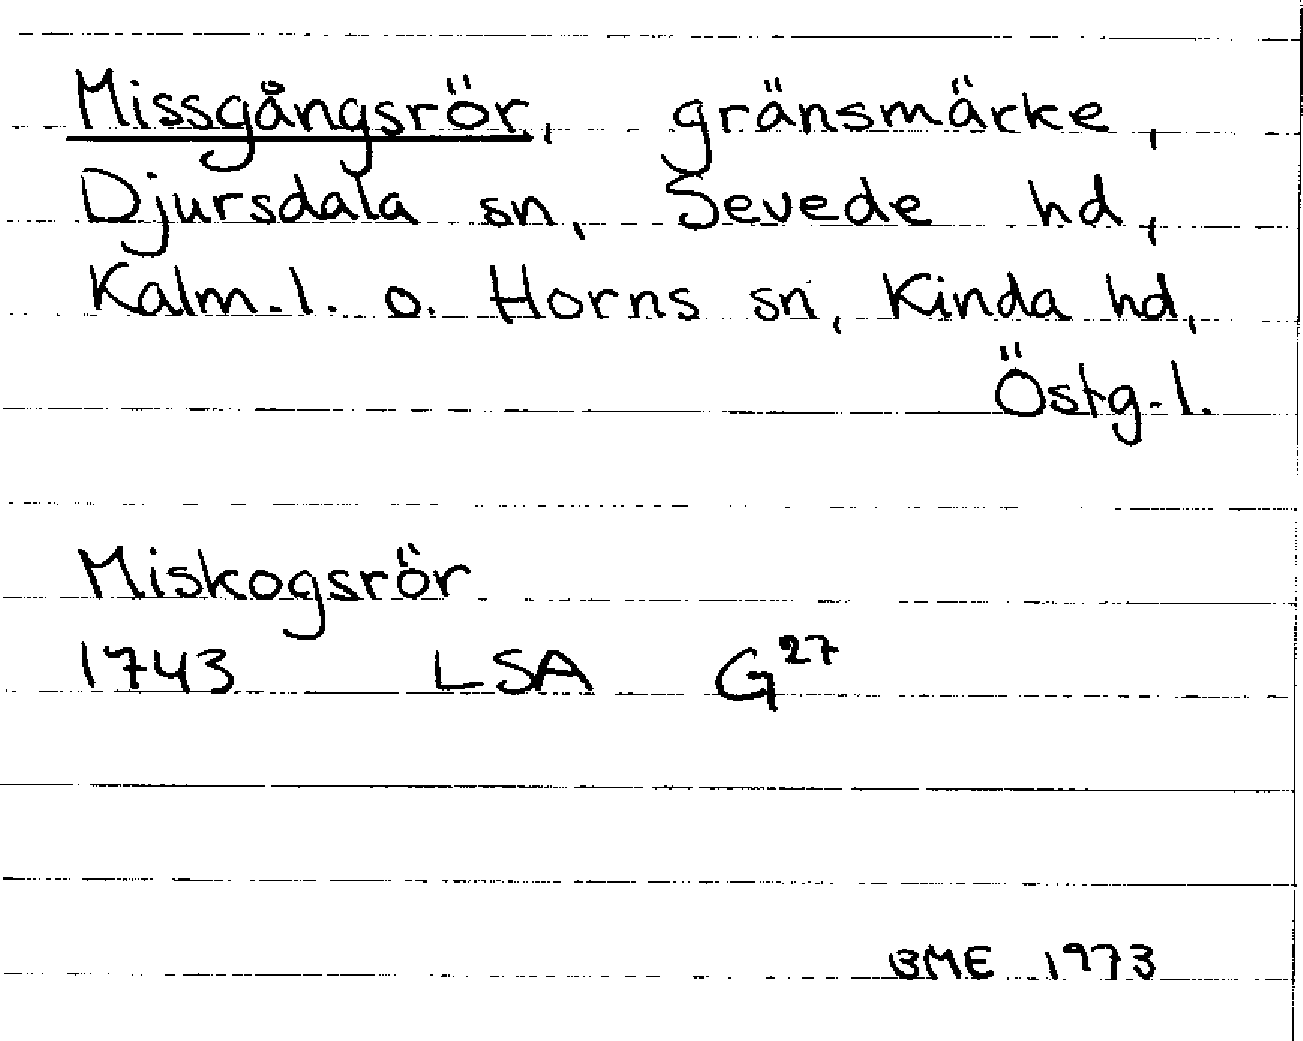 Missgångsrör, gränsmärke,
Djursdala sn, Sevede hd,
Kalm. l. o. Horns sn, Kinda hd,
Östg. l.
Miskogsrör
1743 LSA G27
BME 1973